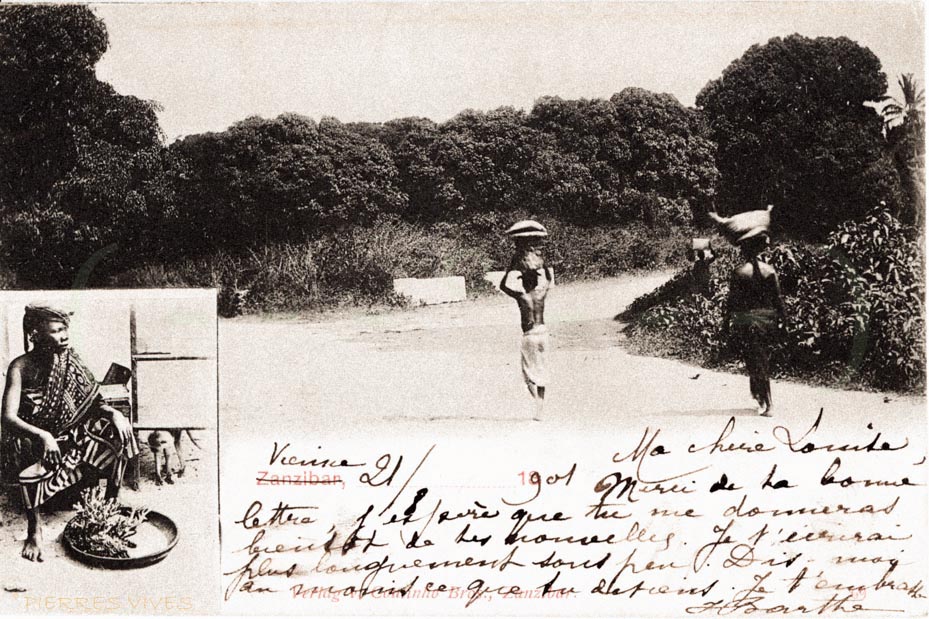 Vienne
Zanzibar, 21/ 1901 Ma chère Louise,
Merci de ta bonne
lettre, j'espère que tu me donneras
bientôt de tes nouvelles. Je t'écrirai
plus longuement sous peu. Dis-moi
au moins ce que tu deviens. Je t'embrasse
Barthe
Verlag Coutinho Bros., Zanzibar.
PIERRES VIVES